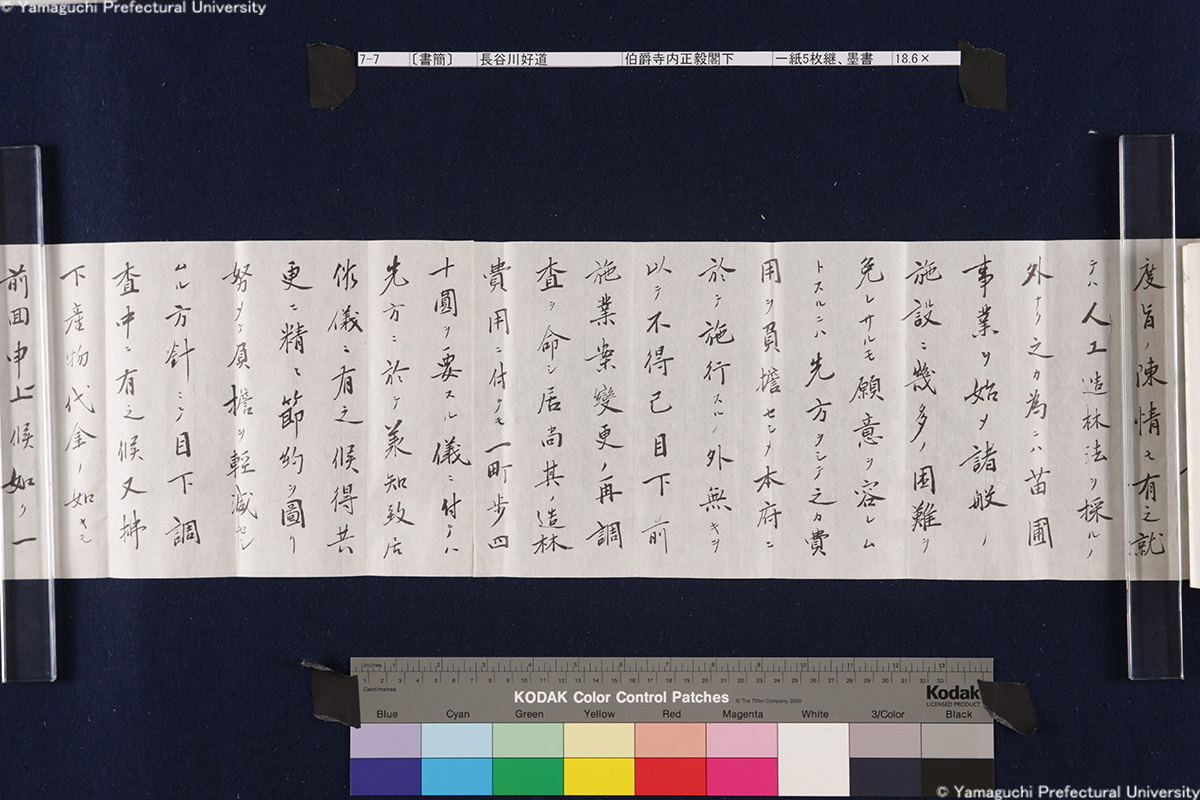 © Yamaguchi Prefectural University
7-7 〔書簡〕 長谷川好道 伯爵寺内正毅閣下 一紙5枚継、墨書 18.6×
度旨ノ陳情モ有之就
テハ人工造林法ヲ採ルノ
外ナク之カ為ニハ苗圃
事業ヲ始メ諸般ノ
施設ニ幾多ノ困難ヲ
免レサルモ願意ヲ容レム
トスルニハ先方ヲシテ之カ費
用ヲ負擔セシメ本府ニ
於テ施行スルノ外無キヲ
以テ不得已目下前
施業案變更ノ再調
査ヲ命シ居尚其ノ造林
費用ニ付テモ一町歩四
十圓ヲ要スル儀ニ付テハ
先方ニ於テ羕知致居
候儀ニ有之候得共
更ニ精々節約ヲ圖リ
努メテ負擔ヲ輕減セシ
ムル方針ニテ目下調
査中ニ有之候又拂
下産物代金ノ如キモ
前回申上候如ク一
Inches 1 2 3 4 5 6 7 8 9 10 11 12 13
Centimetres
KODAK Color Control Patches © The Tiffen Company, 2000 Kodak
LICENSED PRODUCT
Blue Cyan Green Yellow Red Magenta White 3/Color Black
© Yamaguchi Prefectural University